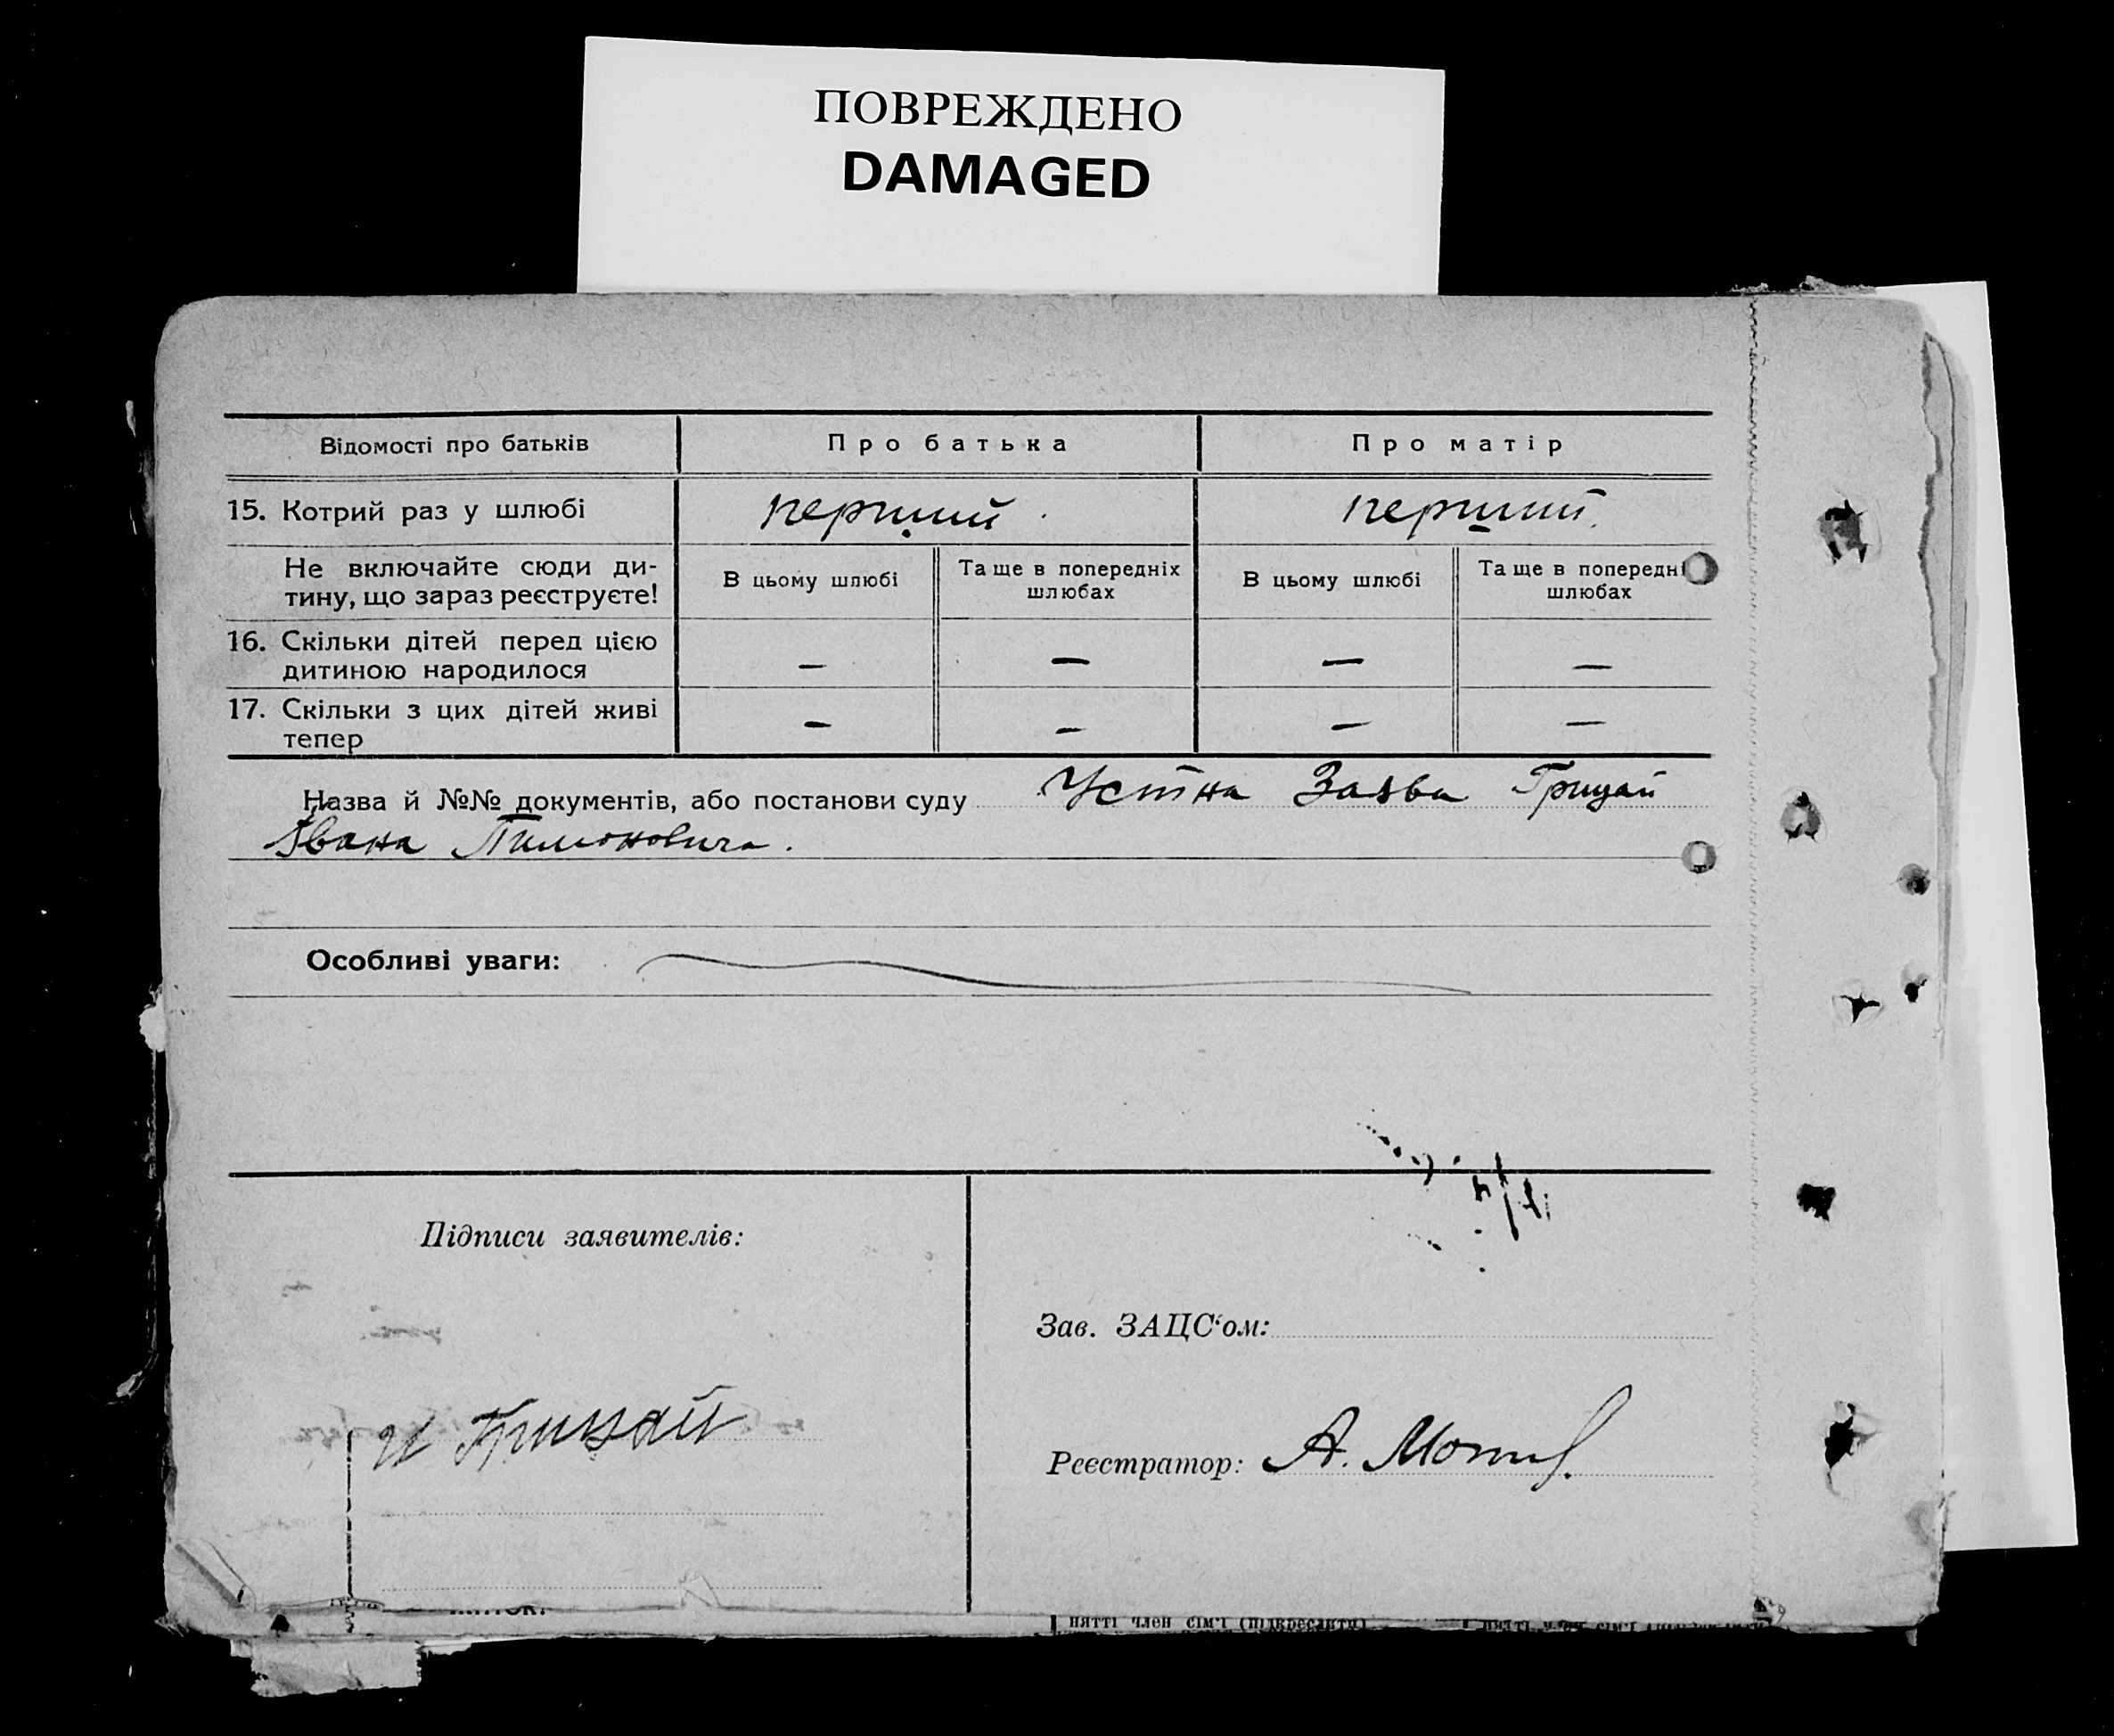 ПОВРЕЖДЕНО
DAMAGED
Відомості про батьків Про батька Про матір
15. Котрий раз у шлюбі перший перший.
Не включайте сюди ди-
тину, що зараз реєструєте!
В цьому шлюбі Та ще в попередніх шлюбах В цьому шлюбі Та ще в попередні шлюбах
16. Скільки дітей перед цією
дитиною народилося — — — —
17. Скільки з цих дітей живі
тепер — — — —
Назва й №№ документів, або постанови суду Устна Заява Грицай
Івана Тимоновича.
Особливі уваги:
Підписи заявителів:
Зав. ЗАЦС‘ом:
И Грицай
Реєстратор: А.
нятті член сім'ї (підкреслити)